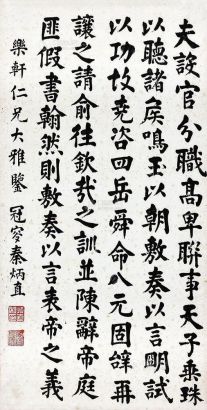 夫設官分職高卑聯事天子垂珠
以聽諸矦鳴玉以朝敷奏以言朙試
以功故堯咨四岳舜命八元固辭再
讓之請俞往欽哉之訓並陳辭帝庭
匪假書翰然則敷奏以言表帝之義
樂軒仁兄大雅鑒 冠 秦炳直